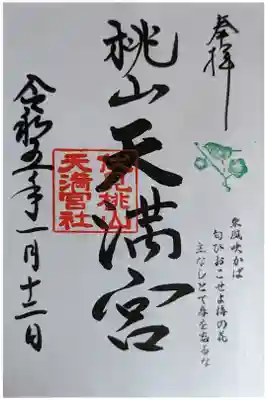 奉拝
東風吹かば
匂ひおこせよ梅の花
主なしとて春を忘るな
桃山天満宮
伏見桃山
天満宮社
令和五年一月十二日